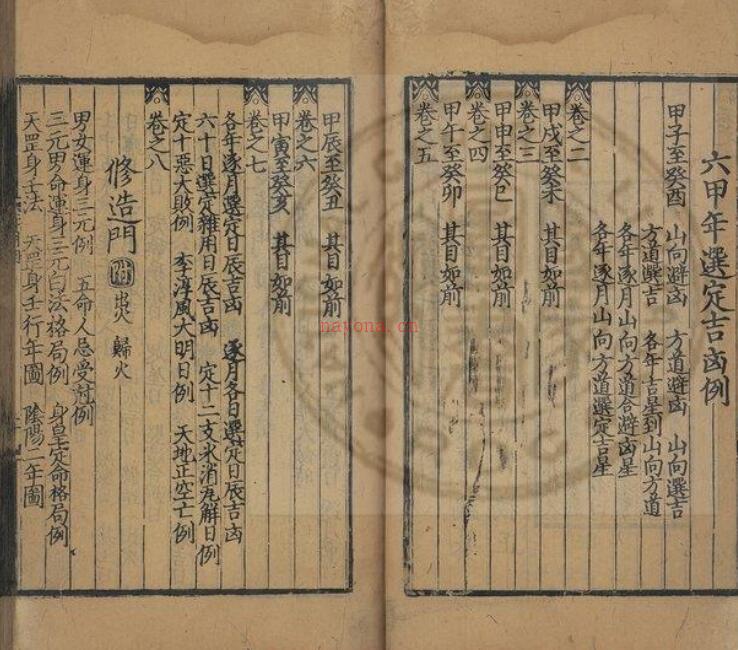 六甲年選定吉凶例
甲子至癸酉 山向避凶 方道避凶 山向選吉
方道選吉 各年吉星到山向方道
各年逐月山向方道合避凶星
各年逐月山向方道選定吉星
卷之二
甲戌至癸未 其目如前
卷之三
甲申至癸巳 其目如前
卷之四
甲午至癸卯 其目如前
卷之五
甲辰至癸丑 其目如前
卷之六
甲寅至癸亥 其目如前
卷之七
各年逐月選定日辰吉凶 逐月各日選定日辰吉凶
六十日選定雜用日辰吉凶 定十二支氷消瓦解日例
定十惡大敗例 李淳風大明日例 天地正空亡例
卷之八
修造門 附 出火 歸火
男女運身三元例 五命人忌受尅例
三元男命運身三元白法格局例 身皇定命格局例
天罡身壬法 天罡身壬行年圖 陰陽二年圖
nayona.cn